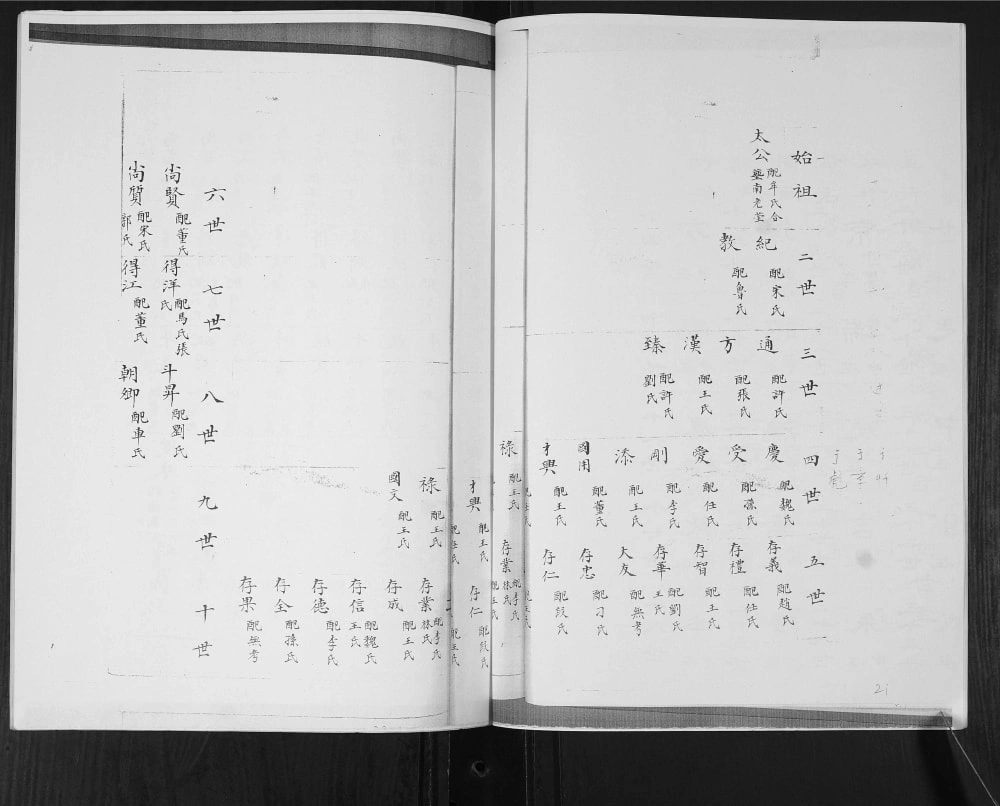 始祖
太公 配牟氏合
塟南老塋
二世
紀 配宋氏
教 配魯氏
三世
通 配許氏
方 配張氏
漢 配王氏
臻 配許氏
劉氏
四世
慶 配魏氏
受 配孫氏
愛 配任氏
剛 配李氏
添 配王氏
國用 配董氏
才興 配王氏
祿 配王氏
五世
存義 配趙氏
存禮 配任氏
存智 配王氏
存華 配劉氏
王氏
大友 配無考
存忠 配刁氏
存仁 配段氏
存業 配李氏
林氏
才興 配王氏
存仁 配段氏
祿 配王氏
國文 配王氏
存業 配李氏
林氏
存成 配王氏
存信 配魏氏
王氏
存德 配李氏
存全 配孫氏
存果 配無考
六世
尚賢 配董氏
尚質 配宋氏
郭氏
七世
得洋 配馬氏張
氏
得江 配董氏
八世
斗昇 配劉氏
朝卿 配車氏
九世
十世
21